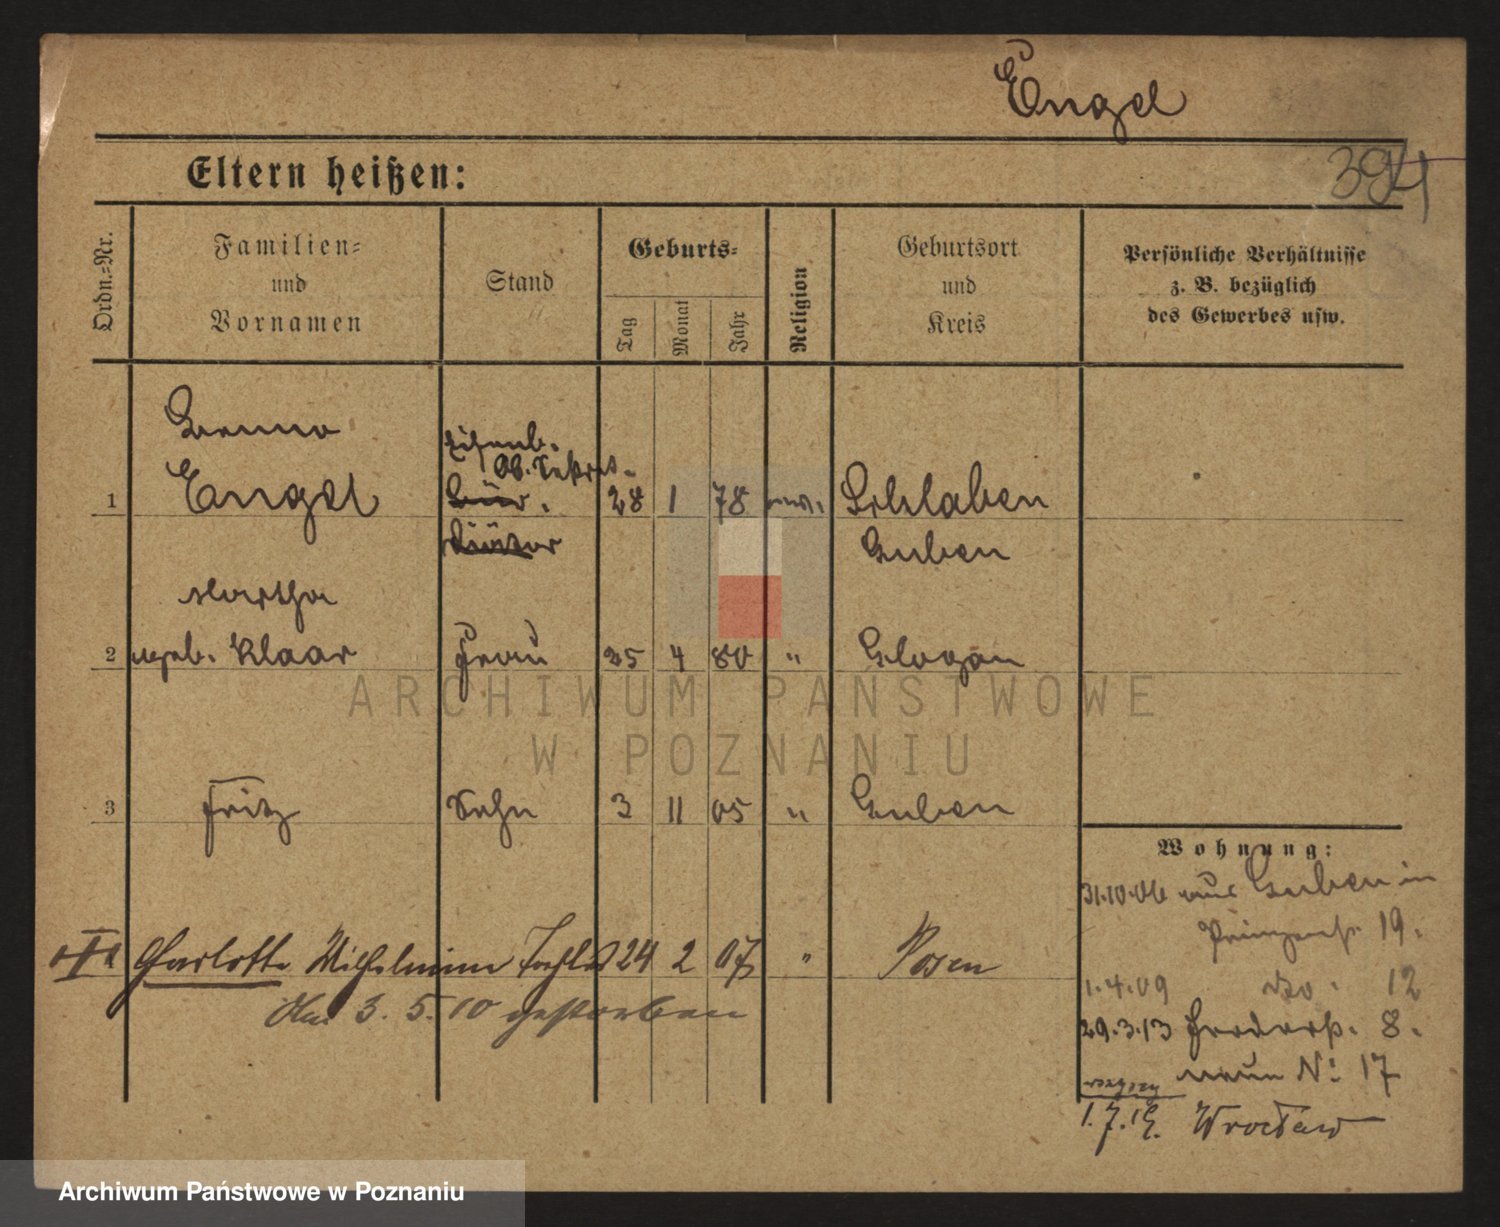 Engel
394
Eltern heißen:
Ordn.=Nr.
Familien=
und
Vornamen
Stand
Geburts=
Tag
Monat
Jahr
Religion
Geburtsort
und
Kreis
Persönliche Verhältnisse
z. B. bezüglich
des Gewerbes usw.
Bruno
Eisenb.
Ob. Sekret.
1 Engel Bür. 28 1 78 Schlaben
Diätar Guben
Martha
2 geb. Klaar Frau 25 4 80 " Glogau
ARCHIWUM PAŃSTWOWE
W POZNANIU
3 Fritz Sohn 3 11 05 " Guben
Wohnung:
31.10.06 aus Guben in
19.
Charlotte Wilhelmine Tochter 24 2 07 " Posen
1.4.09 do. 12
3. 5. 10 gestorben
29.3.13 8.
neue No 17
1.7.19. Wrocław
Archiwum Państwowe w Poznaniu